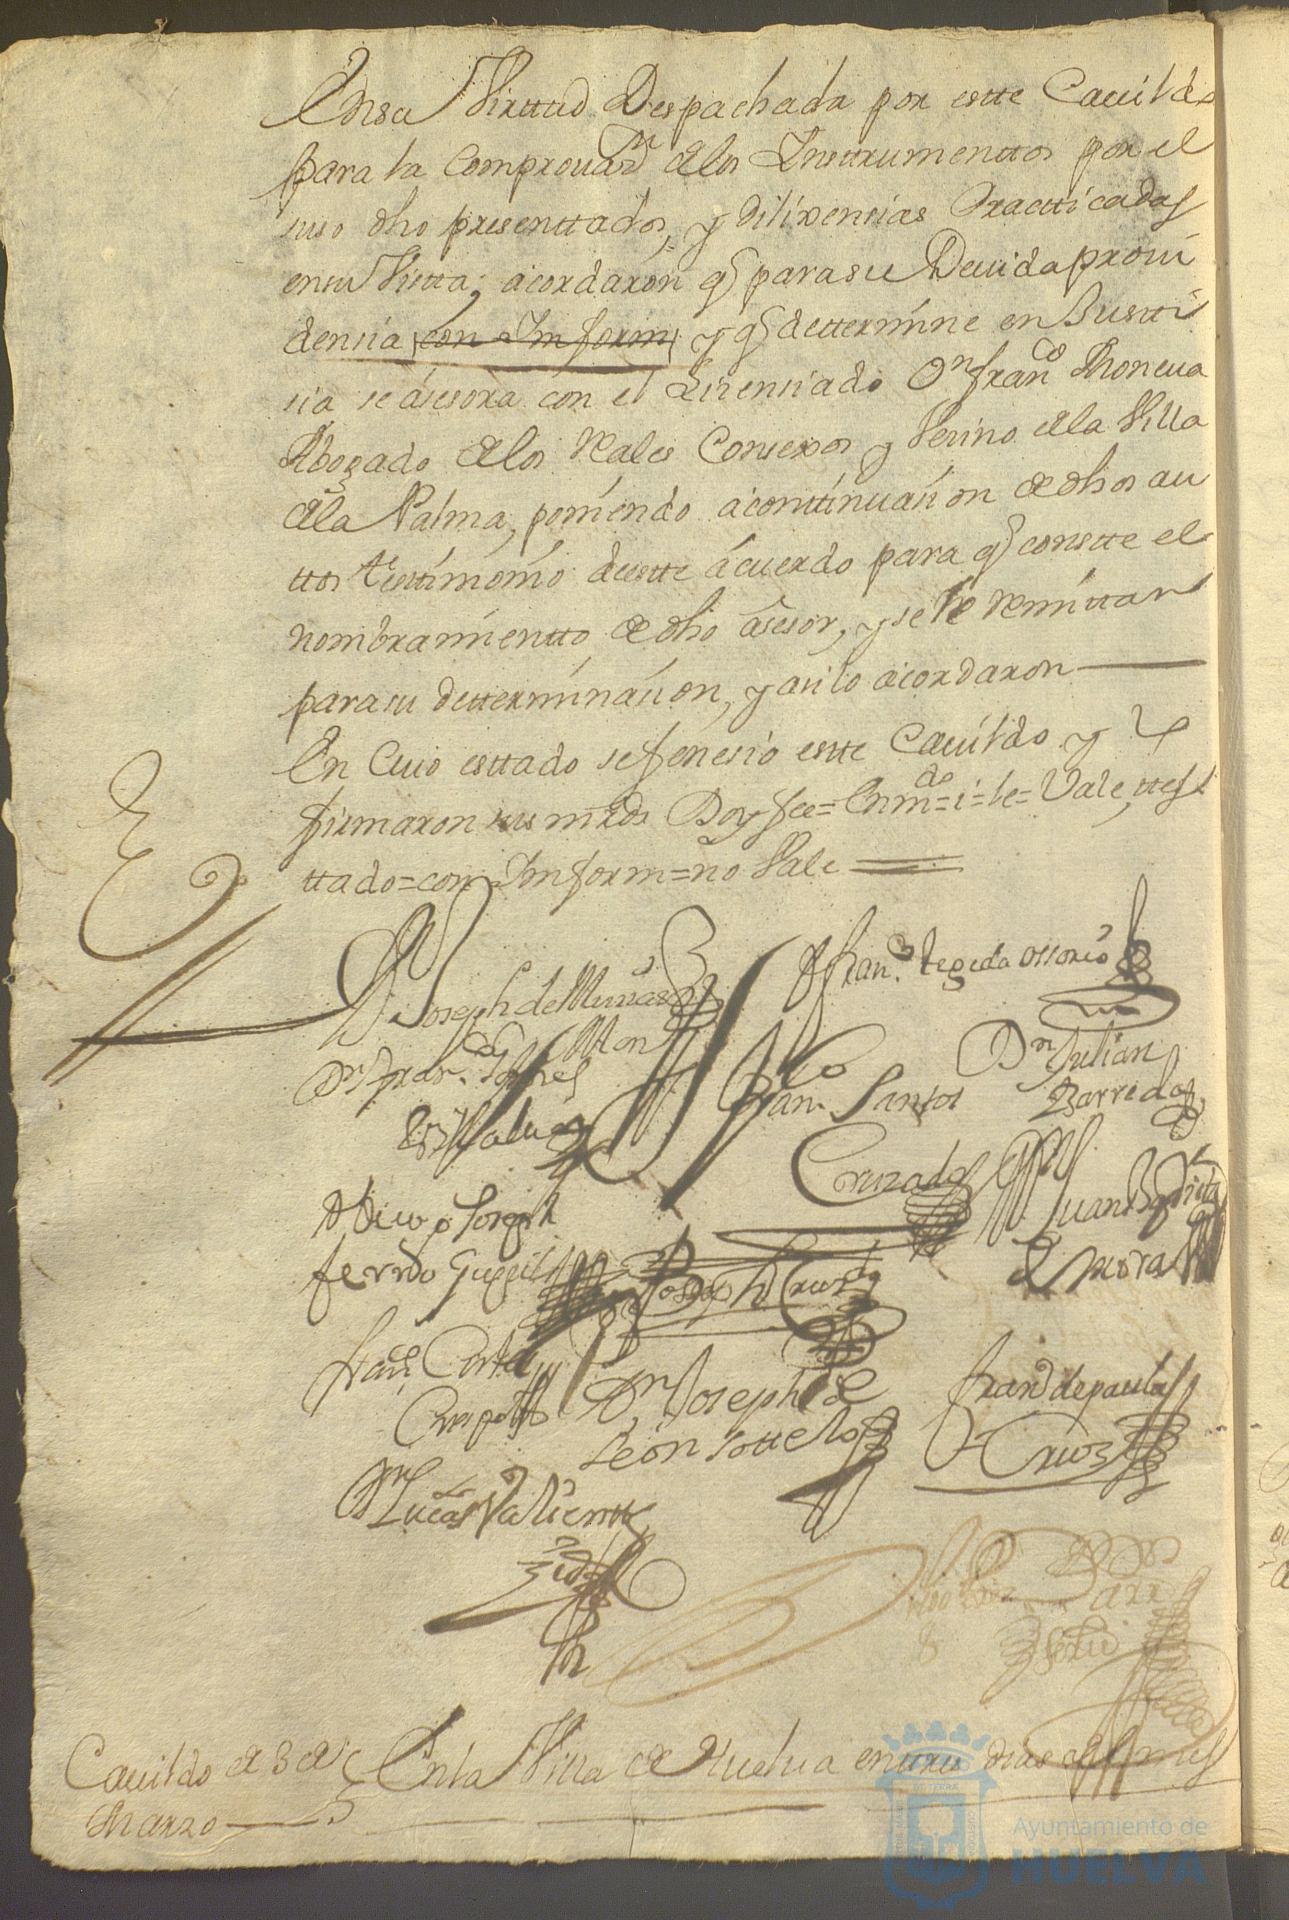 Ensu Virttud Despachada por estte Cauildo
para la Comprouaon. de los Insttrumenttos por el
suso dho presenttados, y dilixensias Practticadas
en su Vistta; acordaron q. para su Deuida proui
densia con Inform y q. dettermine en Justti
sia se asesora con el Lisensiado Dn. Franco. Moncua
Abogado de los Reales Consexos y Vesino de la Villa
de la Palma, poniendo a conttinuasion de dhos au
ttos testtimonio de estte acuerdo para q. constte el
nombramientto de dho asesor, y se le Remittan
para su dettermínasion, y asi lo acordaron
En Cuio esttado se fenesio estte Cauildo y lo
firmaron sus mrds Doy fee= Enmdo.=i=le=Vale, ttes
ttado=con Inform=no Vale
D. Joseph de
D Franco. tegeda ossorio
Dn. Julian
Barreda
Franco. Santos
Cruzado
Juan Bapttista
de mora
Diego Joseph
ferrdo
Joseph Cruzdo
Franco. Cortes
Dn. Joseph de
Leon Sottelo
Franco de paula
Cruz
Dn. Lucas Valientte
Cauildo de 3 de
Marzo
En la Villa de Huelua en tres dias del mes
Ayuntamiento de
HUELVA